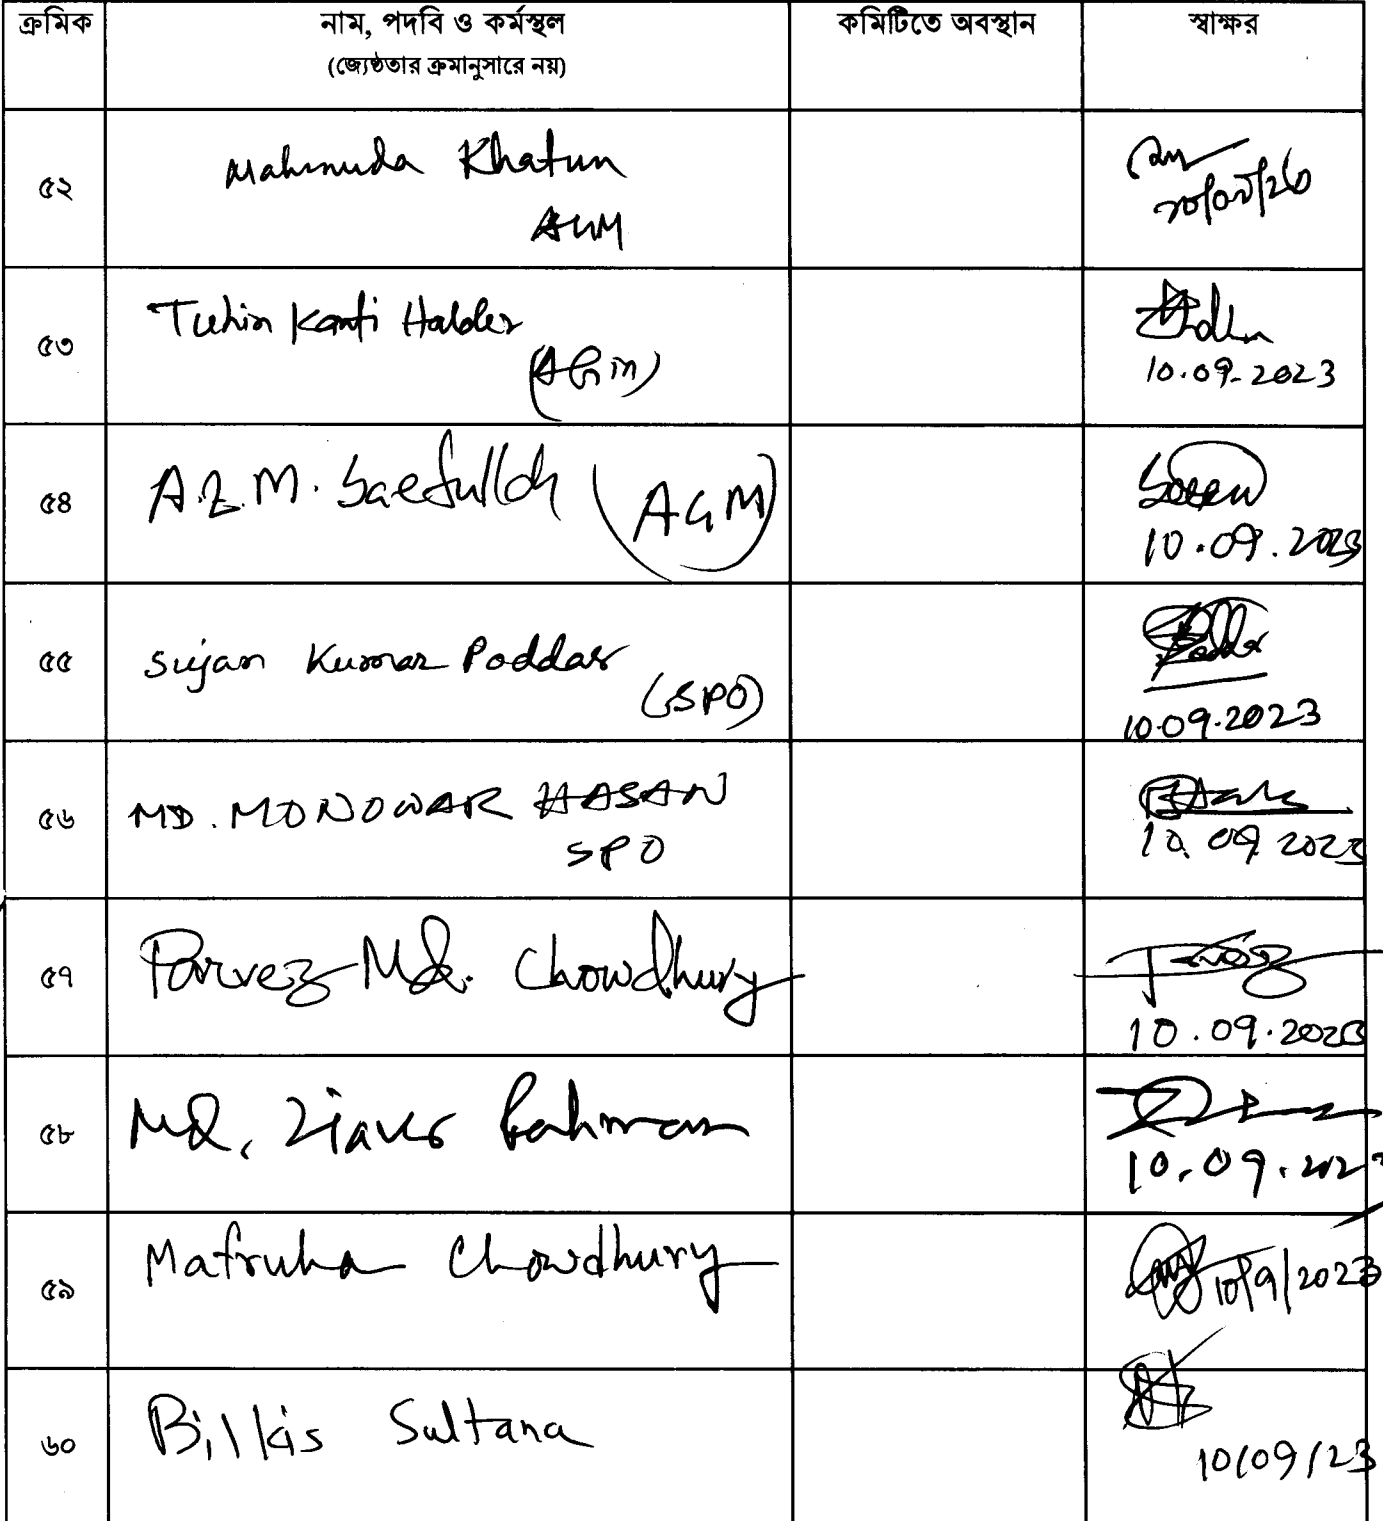 ক্রমিক নাম, পদবি ও কর্মস্থল কমিটিতে অবস্থান স্বাক্ষর
(জ্যেষ্ঠতার ক্রমানুসারে নয়)
৫২ Mahmuda Khatun
AGM
৫৩ Tuhin Kanti Halder
(AGM) 10.09.2023
৫৪ A.Z.M. Saefullah (AGM)
10.09.2023
৫৫ Sujan Kumar Poddar
(SPO) 10.09.2023
৫৬ MD. MONOWAR HASAN
SPO 10.09.2023
৫৭ Parvez Md. Chowdhury Parvez
10.09.2023
৫৮ Md. Ziaur Rahman
10.09.2023
৫৯ Mafruha Chowdhury 10/9/2023
৬০ Bilkis Sultana
10/09/23